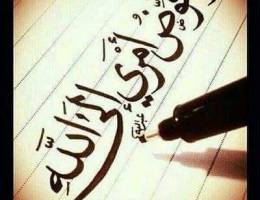 وض أمري إلى الله